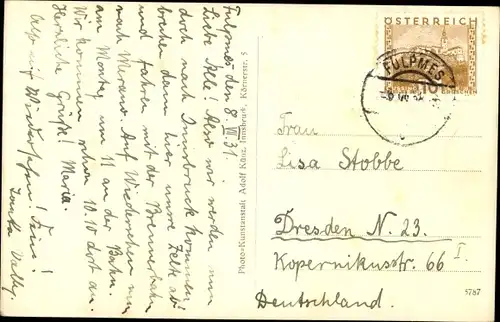 Fulpmes den 8. VII. 31.
Liebe Ille! Also wir werden nun
doch nach Innsbruck kommen,
brechen dann hier unsre Zelte ab
und fahren mit der Brennerbahn
nach Meran. Auf Wiedersehen nun
am Montag um 11 an der Bahn.
Wir kommen schon 10.10 dort an.
Herzliche Grüße! Maria.
Also auf Wiedersehn! Dein!
Tante
Photo-Kunstanstalt Adolf Künz, Innsbruck, Körnerstr. 5
ÖSTERREICH
10
FULPMES
Frau
Lisa Stobbe
Dresden N. 23.
Kopernikusstr. 66 I.
Deutschland.
5787